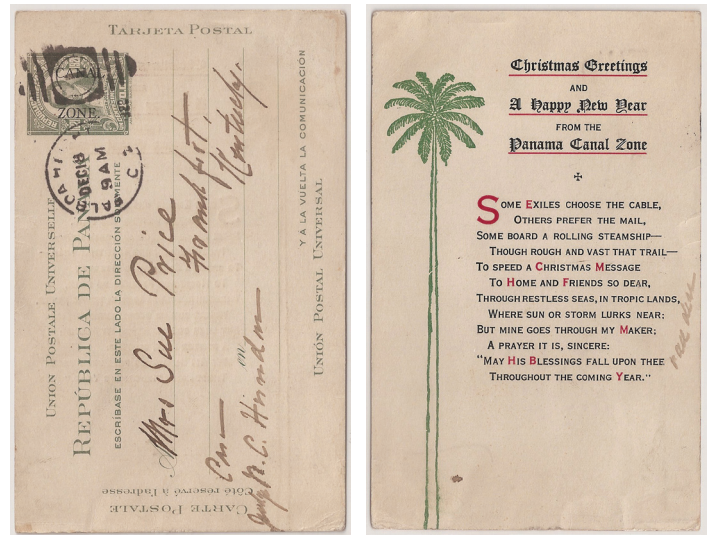 TARJETA POSTAL
UNION POSTALE UNIVERSELLE
REPÚBLICA DE PAN
ESCRIBASE EN ESTE LADO LA DIRECCIÓN SOLAMENTE
Y A LA VUELTA LA COMUNICACIÓN
UNIÓN POSTAL UNIVERSAL
CARTE POSTALE
Côté reservé à l'adresse
CANAL
ZONE
DEC 18
9 AM
C Z
Mrs Sue Price
Frankfort,
Kentucky.
Christmas Greetings
AND
A Happy New Year
FROM THE
Panama Canal Zone
SOME EXILES CHOOSE THE CABLE,
OTHERS PREFER THE MAIL,
SOME BOARD A ROLLING STEAMSHIP—
THOUGH ROUGH AND VAST THAT TRAIL—
TO SPEED A CHRISTMAS MESSAGE
TO HOME AND FRIENDS SO DEAR,
THROUGH RESTLESS SEAS, IN TROPIC LANDS,
WHERE SUN OR STORM LURKS NEAR:
BUT MINE GOES THROUGH MY MAKER;
A PRAYER IT IS, SINCERE:
"MAY HIS BLESSINGS FALL UPON THEE
THROUGHOUT THE COMING YEAR."